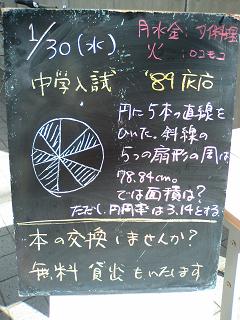 1/30(水)
月水金:
火:ロコモコ
中学入試 '89
円に5本の直線を
ひいた。斜線の
5つの扇形の周は
78.84cm。
では面積は?
ただし、円周率は3.14とする。
本の交換しませんか?
無料貸出もいたします